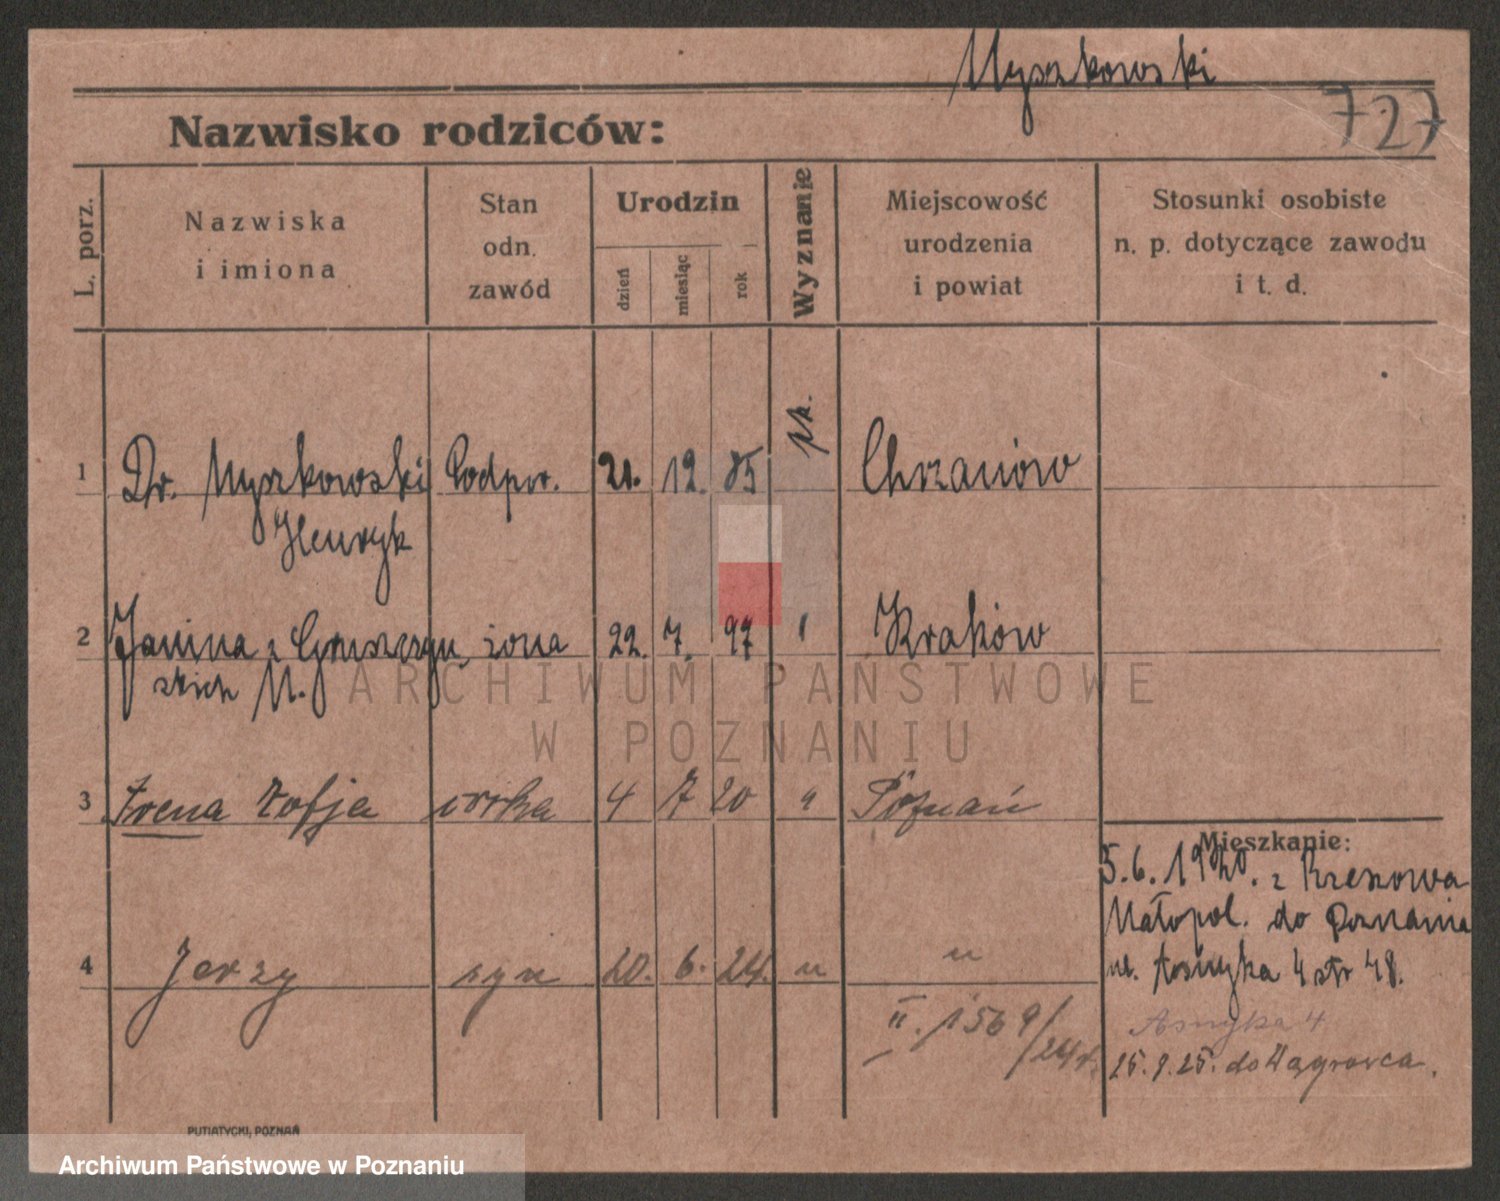 Myszkowski
727
Nazwisko rodziców:
L. porz.
Nazwiska
i imiona
Stan
odn.
zawód
Urodzin
dzień
miesiąc
rok
Wyznanie
Miejscowość
urodzenia
i powiat
Stosunki osobiste
n. p. dotyczące zawodu
i t. d.
1 Dr. Myszkowski Podpor. 21. 12. 85 rk. Chrzanów
Henryk
2 Janina z Gruszczyń żona 22. 7. 97 " Kraków
skich M.
3 Irena Zofja córka 4 7 20 " Poznań
Mieszkanie:
5.6.1920. z Rzeszowa
Małopol. do Poznania
ul. Asnyka 4 str 48.
4 Jerzy syn 20. 6. 24. " "
II. 1569/
/24r.
Asnyka 4
25.9.25. do Wągrowca.
PUTIATYCKI, POZNAŃ
ARCHIWUM PAŃSTWOWE
W POZNANIU
Archiwum Państwowe w Poznaniu